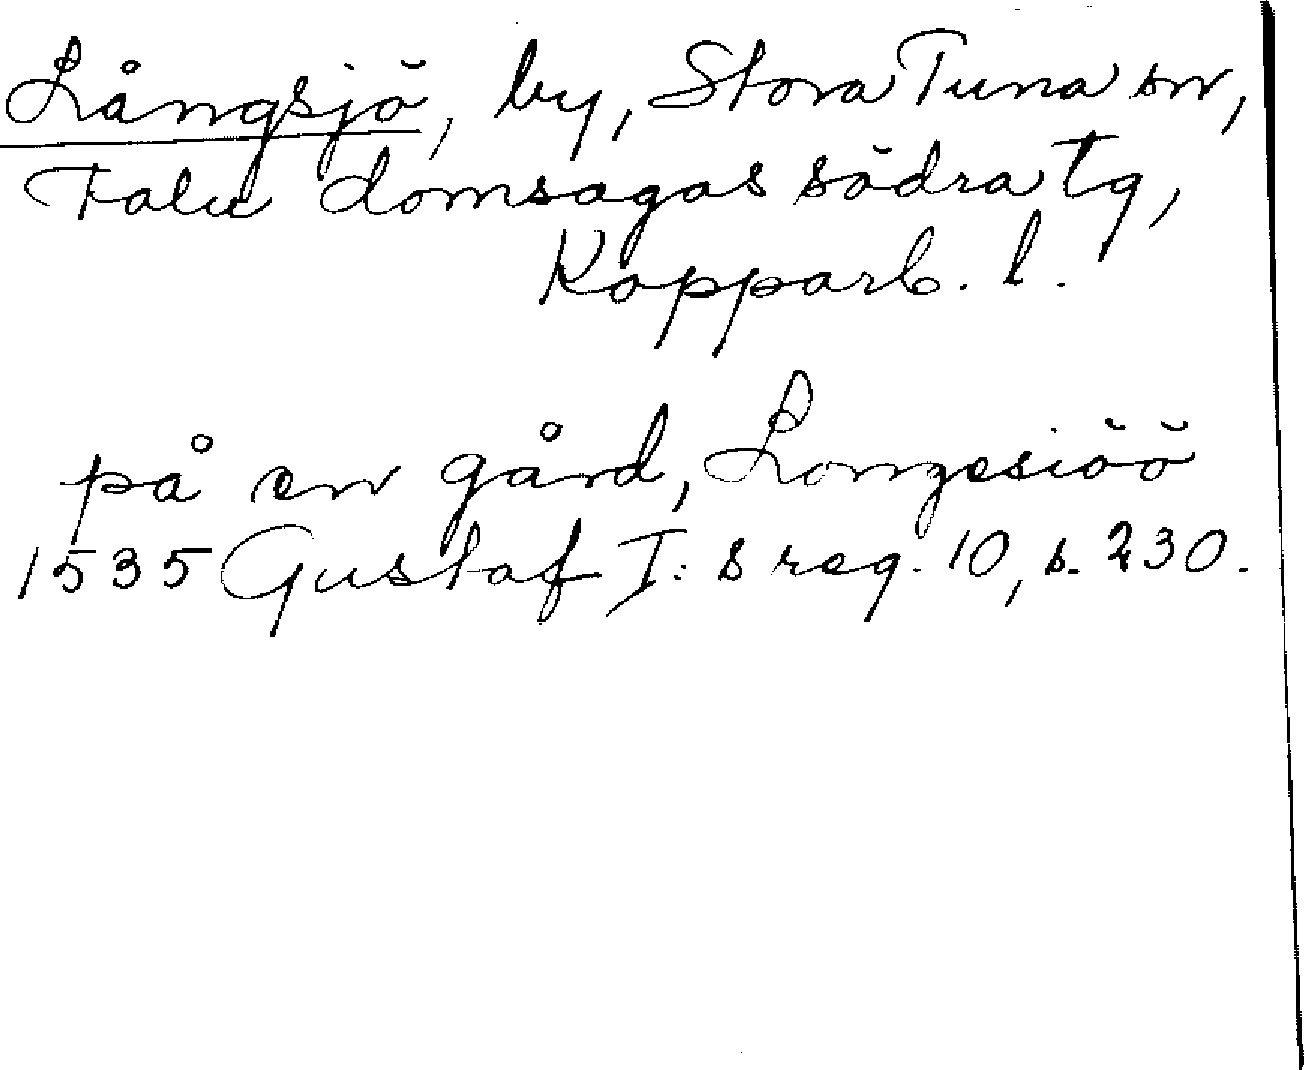 Långsjö, by, Stora Tuna sn,
Falu domsagas södra tg,
Kopparb. l.
på en gård, Longesiöö
1535 Gustaf I:s reg. 10, s. 230.